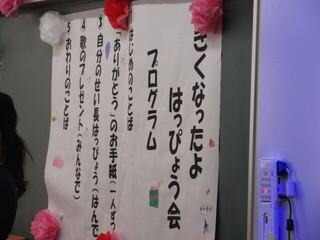 きくなったよ
はっぴょう会
プログラム
はじめのことば
「ありがとう」のお手紙(一人ずつ
3 自分のせい長はっぴょう(はんで
4 歌のプレゼント(みんなで)
5 おわりのことば